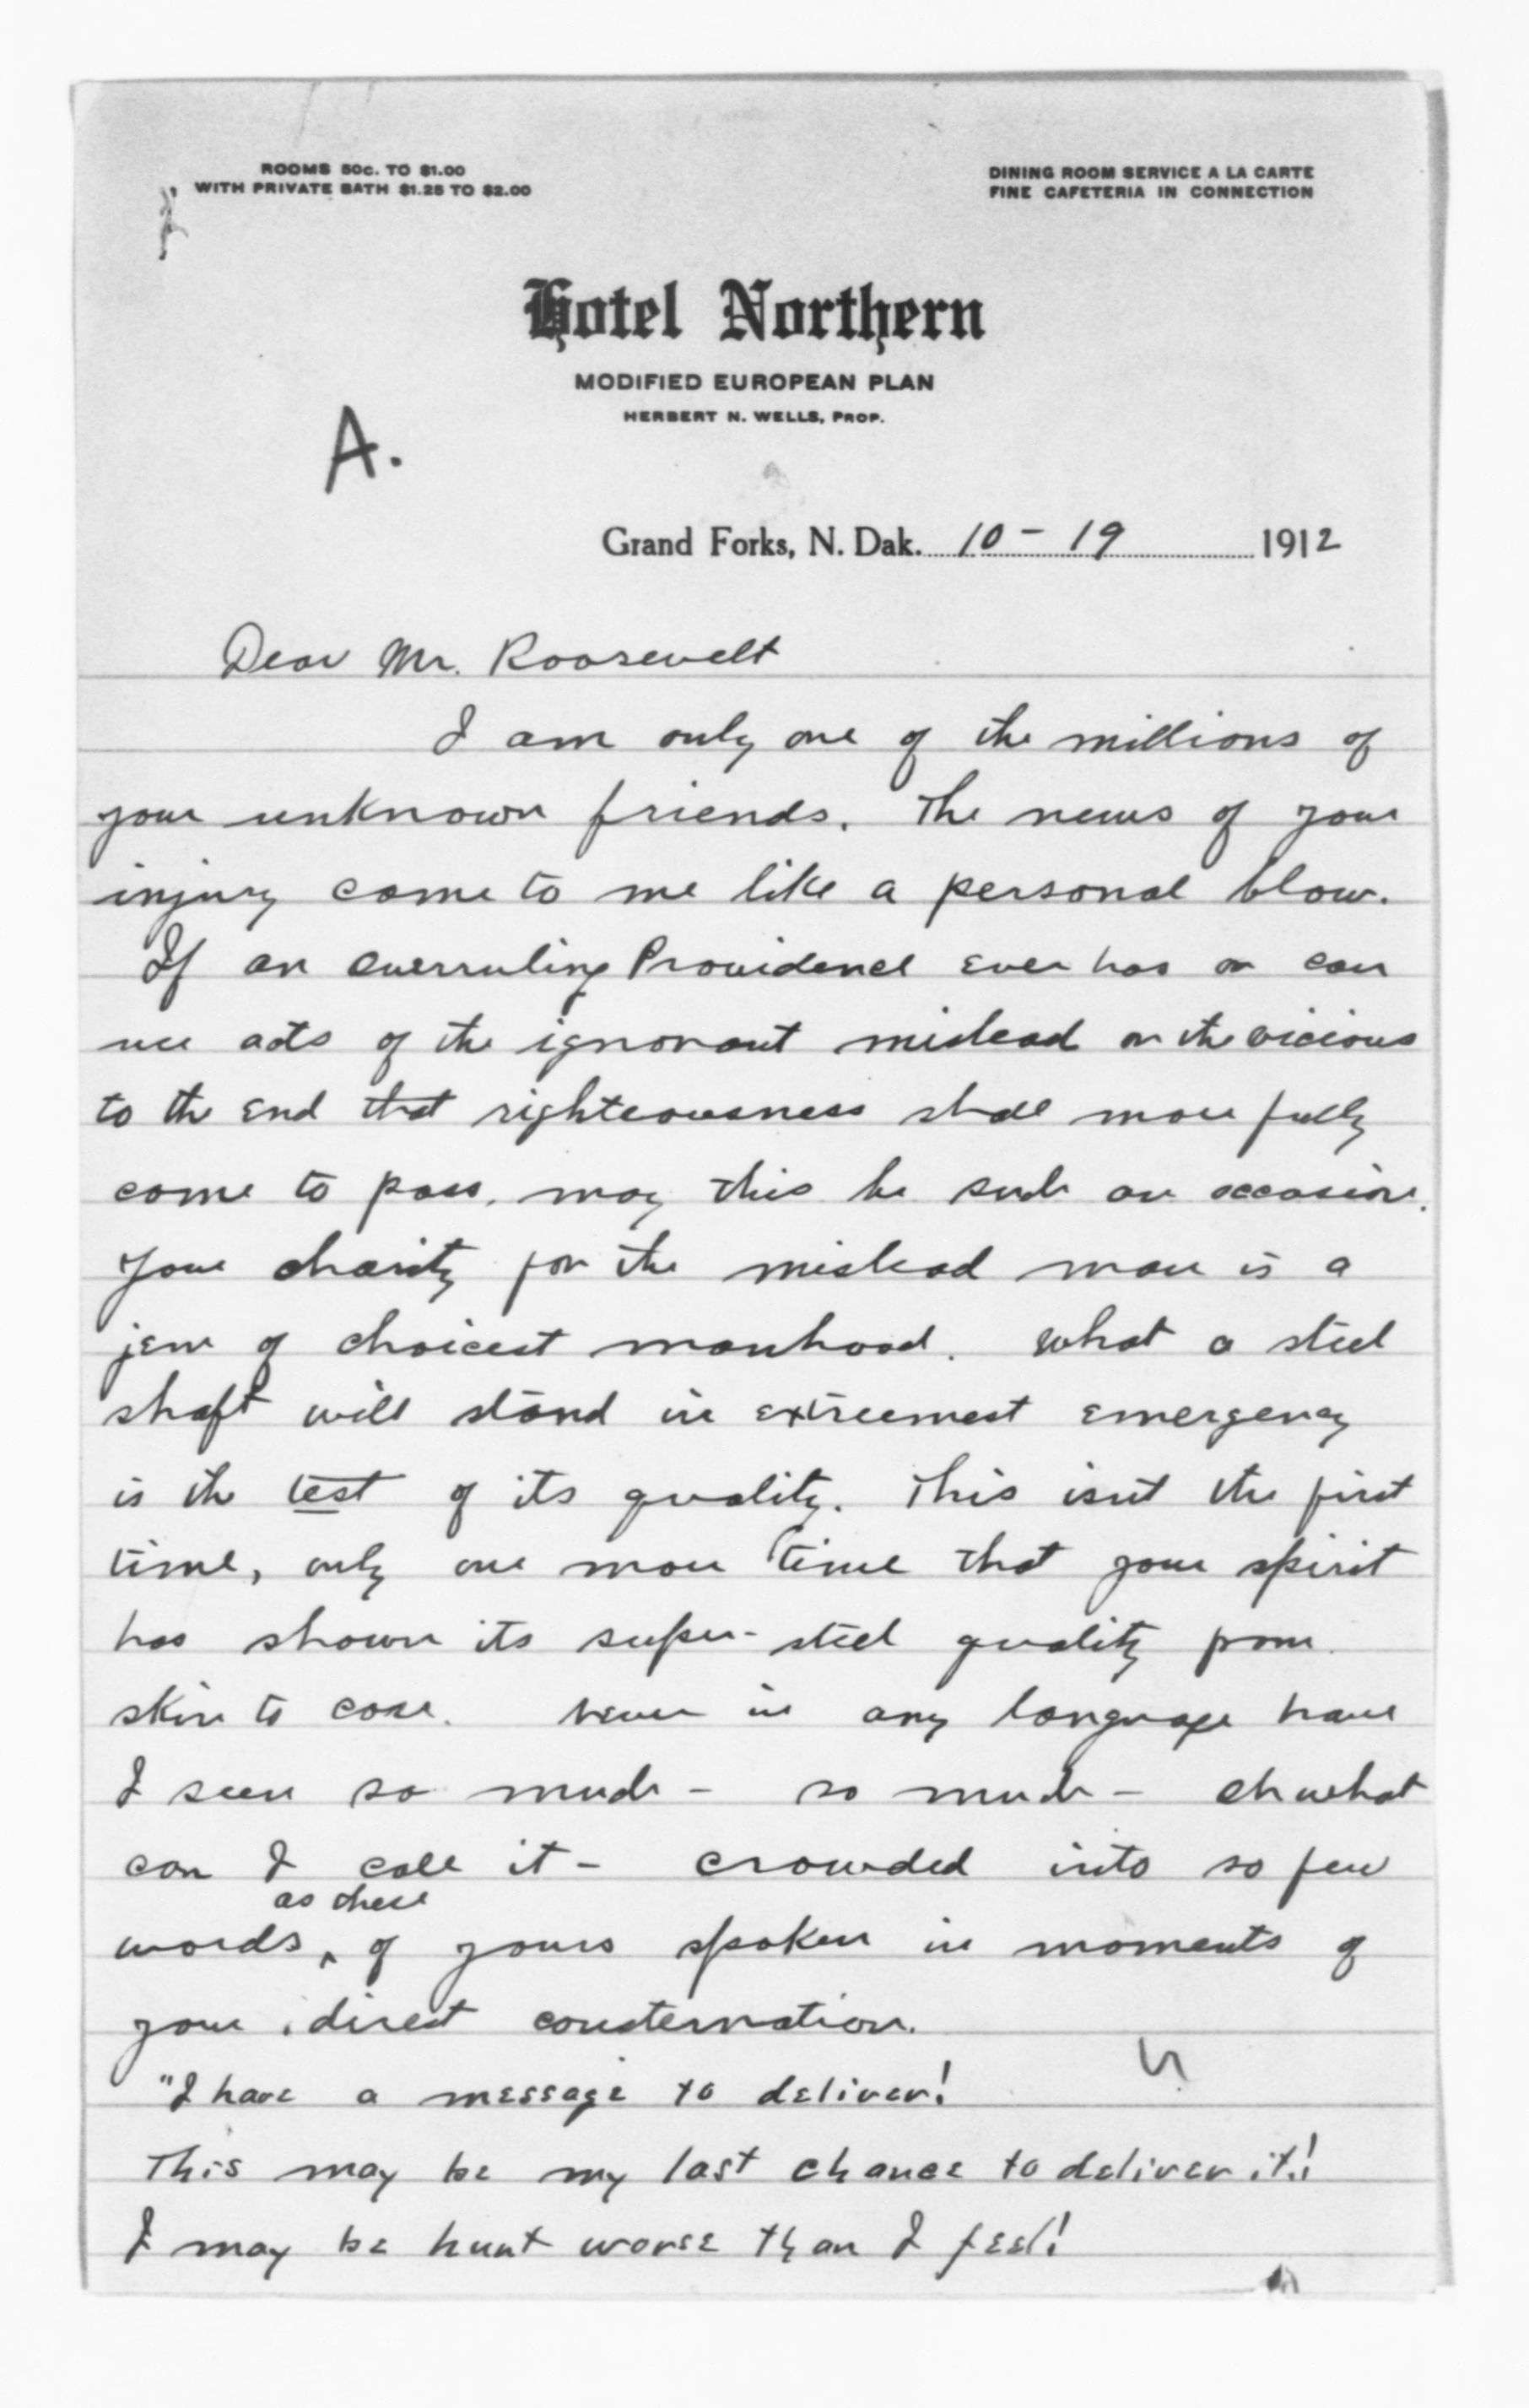 ROOMS 50C. TO $1.00
WITH PRIVATE BATH $1.25 TO $2.00
DINING ROOM SERVICE A LA CARTE
FINE CAFETERIA IN CONNECTION
Hotel Northern
MODIFIED EUROPEAN PLAN
HERBERT N. WELLS, PROP.
A.
Grand Forks, N. Dak. 10 - 19 1912
Dear Mr. Roosevelt
I am only one of the millions of
your unknown friends. The news of your
injury came to me like a personal blow.
If an overruling Providence ever has or can
use acts of the ignorant mislead or the vicious
to the end that righteousness shall more fully
come to pass, may this be such an occasion.
Your charity for the mislead man is a
jem of choicest manhood. What a steel
shaft will stand in extreemest emergency
is the test of its quality. This isn't the first
time, only one more time that your spirit
has shown its super-steel quality from
skin to core. Never in any language have
I seen so much - so much - eh what
can I call it - crowded into so few
as these
words ‸ of yours spoken in moments of
your direst consternation.
"I have a message to deliver!
This may be my last chance to deliver it!
I may be hurt worse than I feel!